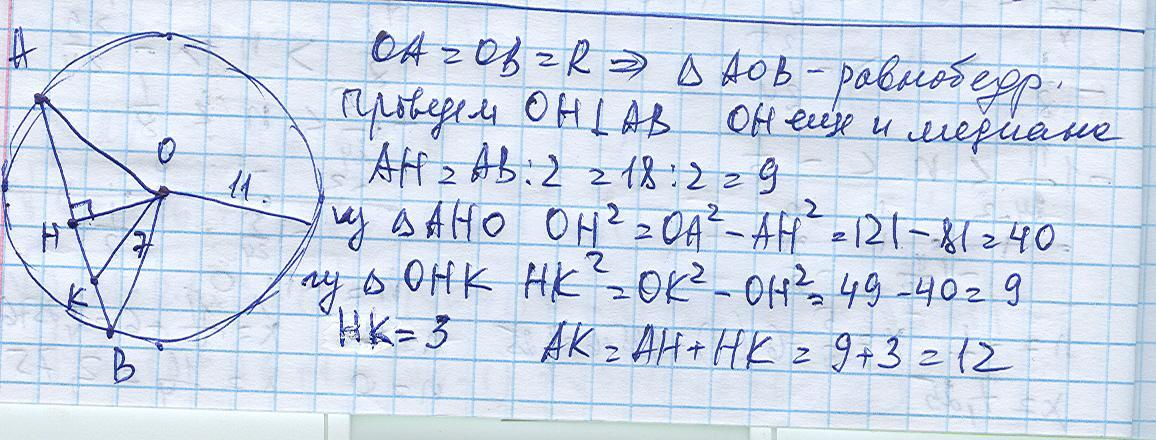 OA = OB = R ⇒ Δ AOB - равнобедр.
Проведем OH ⊥ AB OH еще и медиана
AH = AB : 2 = 18 : 2 = 9
из Δ AHO OH² = OA² - AH² = 121 - 81 = 40
из Δ OHK HK² = OK² - OH² = 49 - 40 = 9
HK = 3 AK = AH + HK = 9 + 3 = 12
A
O
11.
H
7
K
B